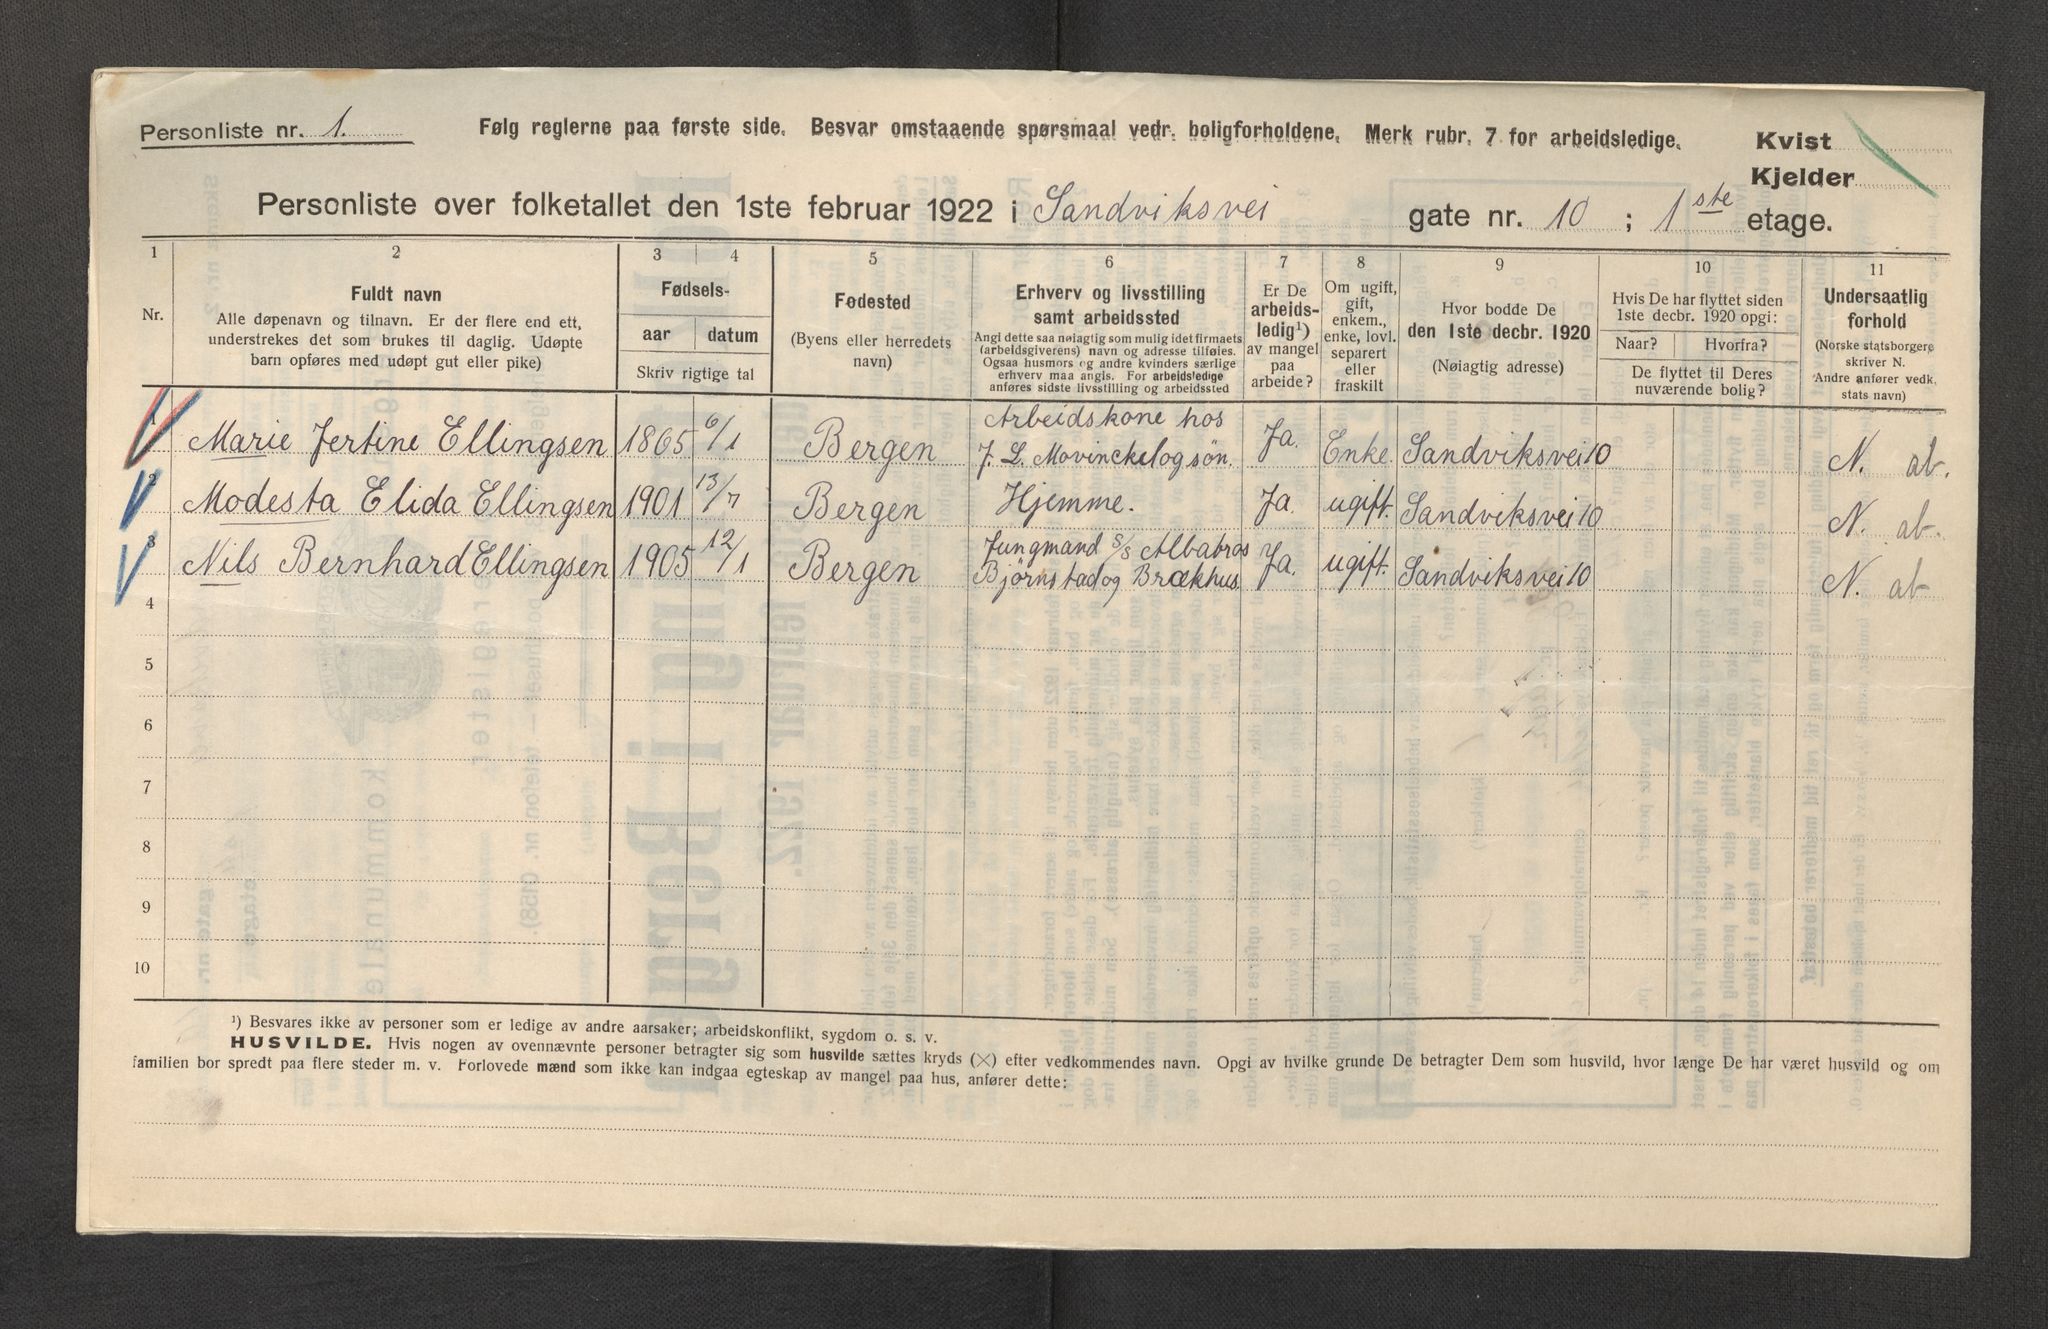 Personliste nr. 1.
Følg reglerne paa første side. Besvar omstaaende spørsmaal vedr. boligforholdene. Merk rubr. 7 for arbeidsledige.
Kvist
Kjelder
Personliste over folketallet den 1ste februar 1922 i Sandviksvei gate nr. 10 ; 1ste etage.
1 2 3 4 5 6 7 8 9 10 11
Nr.
Fuldt navn
Alle døpenavn og tilnavn. Er der flere end ett,
understrekes det som brukes til daglig. Udøpte
barn opføres med udøpt gut eller pike)
Fødsels-
aar datum
Skriv rigtige tal
Fødested
(Byens eller herredets
navn)
Erhverv og livsstilling
samt arbeidssted
Angi dette saa nøiagtig som mulig idet firmaets
(arbeidsgiverens) navn og adresse tilføies.
Ogsaa husmors og andre kvinders særlige
erhverv maa angis. For arbeidsledige
anføres sidste livsstilling og arbeidssted
Er De
arbeids-
ledig¹)
av mangel
paa
arbeide?
Om ugift,
gift,
enkem.,
enke, lovl.
separert
eller
fraskilt
Hvor bodde De
den 1ste decbr. 1920
(Nøiagtig adresse)
Hvis De har flyttet siden
1ste decbr. 1920 opgi:
Naar? Hvorfra?
De flyttet til Deres
nuværende bolig?
Undersaatlig
forhold
(Norske statsborgere
skriver N.
Andre anfører vedk.
stats navn)
1 Marie Jertine Ellingsen 1865 6/1 Bergen Arbeidskone hos
J. L. Movinckel og søn. Ja. Enke. Sandviksvei 10 N. ab.
2 Modesta Elida Ellingsen 1901 13/7 Bergen Hjemme. Ja. ugift. Sandviksvei 10 N. ab.
3 Nils Bernhard Ellingsen 1905 12/1 Bergen Jungmand S/S Albatros
Bjørnstad og Brækhus Ja. ugift. Sandviksvei 10 N. ab
4
5
6
7
8
9
10
¹) Besvares ikke av personer som er ledige av andre aarsaker; arbeidskonflikt, sygdom o. s. v.
HUSVILDE. Hvis nogen av ovennævnte personer betragter sig som husvilde sættes kryds (×) efter vedkommendes navn. Opgi av hvilke grunde De betragter Dem som husvild, hvor længe De har været husvild og om
familien bor spredt paa flere steder m. v. Forlovede mænd som ikke kan indgaa egteskap av mangel paa hus, anfører dette: